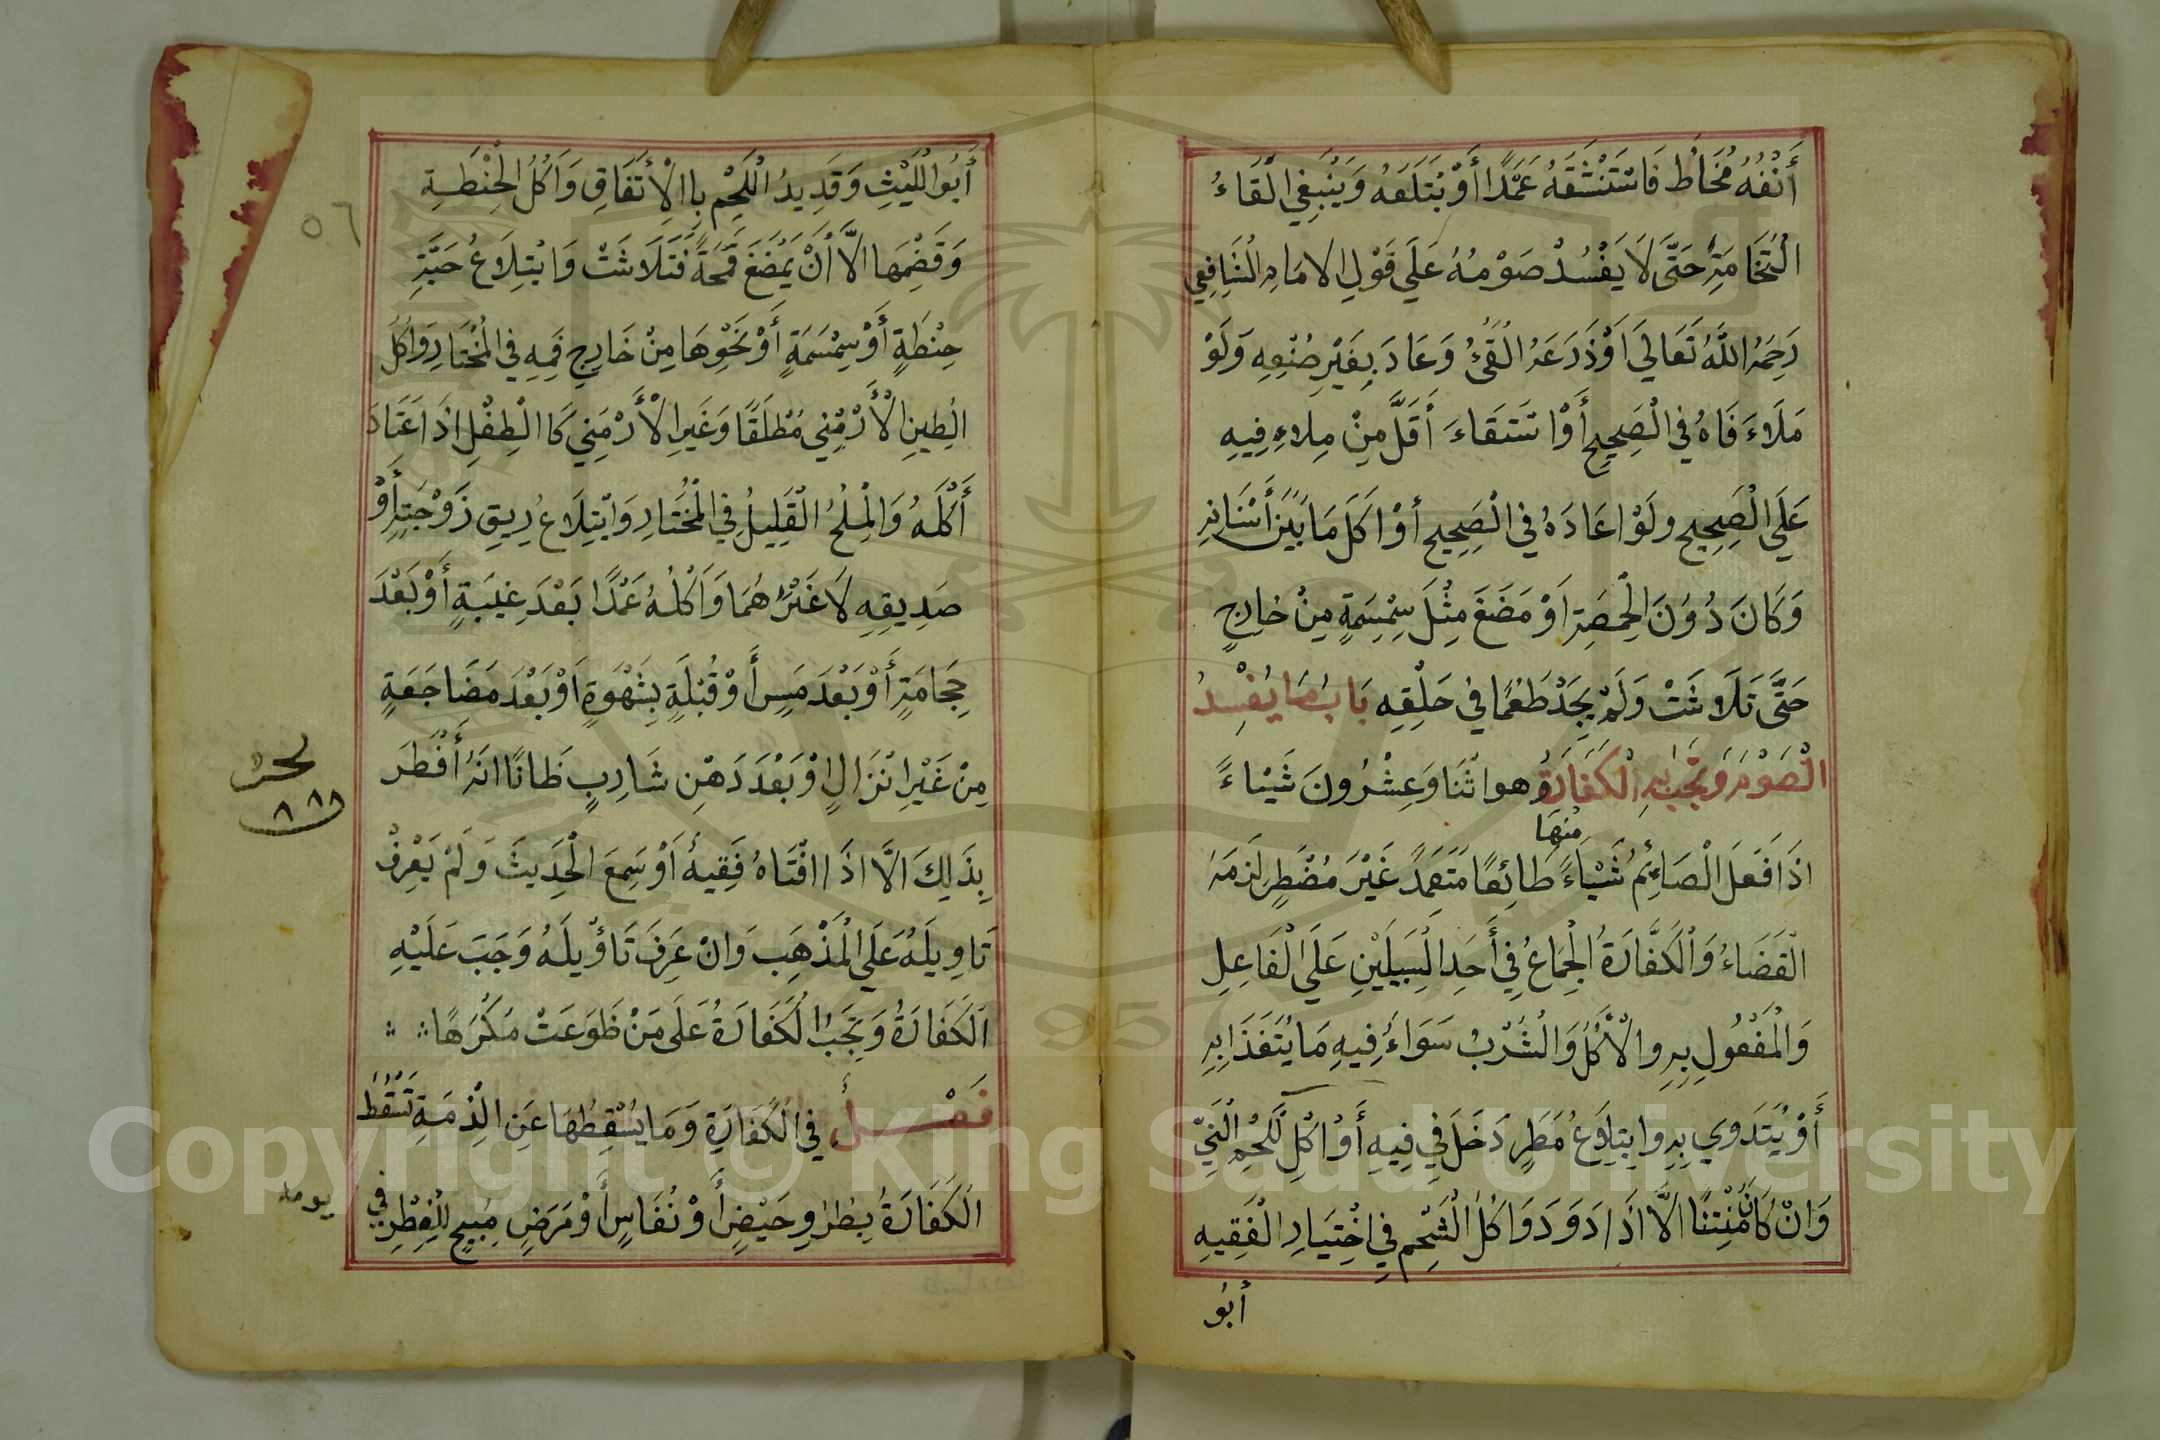 أَنْفُهُ مُخَاطٌ فَاسْتَنْشَقَهُ عَمَدًا أَوْبْتَلَعَهُ وَيَنْبَغِي الْقَاءُ
النُّخَامَةِ حَتَّى لَا يَفْسُدْ صَوْمُهُ عَلَي قَوْلِ الامَامِ الشَّافِعِي
رَحِمَهُ اللَّهُ تَعَالَي اَوْذَرَعَهُ الْقَئُ وَعَادَ بِغَيْرِ صُنْعِهِ وَلَوْ
مَلَاءَ فَاهُ فِي الْصَحِيحِ أَوْاسْتَقَاءَ أَقَلَّ مِنْ مِلاءِ فِيهِ
عَلَي الْصَحِيحِ ولَوْ اعَادَهُ فِي الْصَحِيحِ أوْاَكَلَ مَابَيْنَ أَسْنَانِهِ
وَكَانَ دُوْنَ الْحِمَصِةِ اَوْ مَضَغَ مِثْلَ سِمْسِمَةٍ مِنْ خارِجٍ
حَتَّى تَلَاشَتْ وَلَمْ يَجَدْ طَعْمًا فِي حَلْقِهِ بَابُ مَا يُفْسِدُ
الْصَوْمَ وَتَجَبُ بِهِ الْكَفَارَةُ وهواثْنَا وَعِشْرُونَ شَيْاءً
مِنْهَا
اذَا فَعَلَ الْصَائِمُ شَيْاءً طَائِعًا مَتَعَمَدً غَيْرَ مُضْطَرٍ لَزِمَهُ
الْقَضَاءُ وَالْكَفَّارَةُ الْجِمَاعُ فِي أَحَدِ الْسَبِيلَيْنِ عَلَي الْفَاعِلِ
وَالْمَفْعُولِ بِهِ والْأَكْلُ وَالْشُرْبُ سَوَاءُ فِيهِ مَايُتَغَذَابِهِ
أَوْ يُتَدَوي بِهِ وابتِلَاعُ مُطَرٍ دَخَلَ فِي فِيهِ أَوْاكْلِ لَّحْمِ الْنَيّ
وَانْ كَانَ مُنْتِنًا الَّا اذَا دَوَدَ وَاكْلُ الْشَحْمِ فِي اخْتِيَارِ الْفَقِيهِ
أبُو
أَبُوالْلَيْثِ وَقَدِيدُ الْلَحْمِ بِاالْأَتَفَاقِ وَاَكْلُ الْحِنْطَةِ
وَقَضْمِهَا الَّا أَنْ يَمْضَغَ قَمْحَةً فَتَلَاشَتْ وَابْتِلَاعُ حَبَّةِ
حِنْطَةٍ أَوْسِمْسَمَةٍ أَوْ نَحْوِهَا مِنْ خَارِجِ فَمِهِ فِي الْمُخْتَارِ وَاكْلُ
الْطِينِ الْأَرْمْنِي مُطْلَقًا وَغَيرِ الْأَرْمَنِي كَا الْطِفْلِ اذَا عَتَادَ
أَكْلَهُ وَالْمِلْحُ الْقَلِيلُ فِي الْمُخْتَارِ وَابْتِلَاعُ رِيقِ زَوْجَتِهِ أَوْ
صَدِيقِهِ لَا غَيْرُهُمَا وَاَكْلُهُ عَمْدًا بَعْدَ غِيبَةٍ أَوْ بَعْدَ
حِجَامَةٍ أَوْ بَعْدَ مَسٍ أَوْ قُبْلَةٍ بِشَهْوَةٍ اَوْ بَعْدَ مَضَاجَعَةٍ
مِنْ غَيْرِ انْزَالٍ اوْ بَعْدَ دَهْنِ شَارِبٍ ظَانًا انَهُ أَفْطَرَ
بِذَلِكَ الَّا اذَا افْتَاهُ فَقِيهُ اَوْ سَمِعَ الْحَدِيثَ وَلَمْ يَعْرِفْ
تَاوِيلَهُ عَلَي الْمَذْهَبِ وَانْ عَرِفَ تَاؤِيلَهُ وَجَبَ عَلَيْهِ
الْكَفَارَةُ وَتَجِبُ الْكَفَارَةُ عَلَى مَنْ طَوَعَتْ مَكْرَهًا
فَصْلٌ فِي الْكَفَارَةِ وَمَا يَسْقِطُهَا عَنِ الْذِمَةِ تَسْقُطُ
الْكَفَارَةُ بِطُرُوِ حَيْضٍ أَوْ نُفَاسٍ أَوْ مَرَضٍ مُبِيحٍ لِلْفِطْرِ فِي
يومه
٥٦